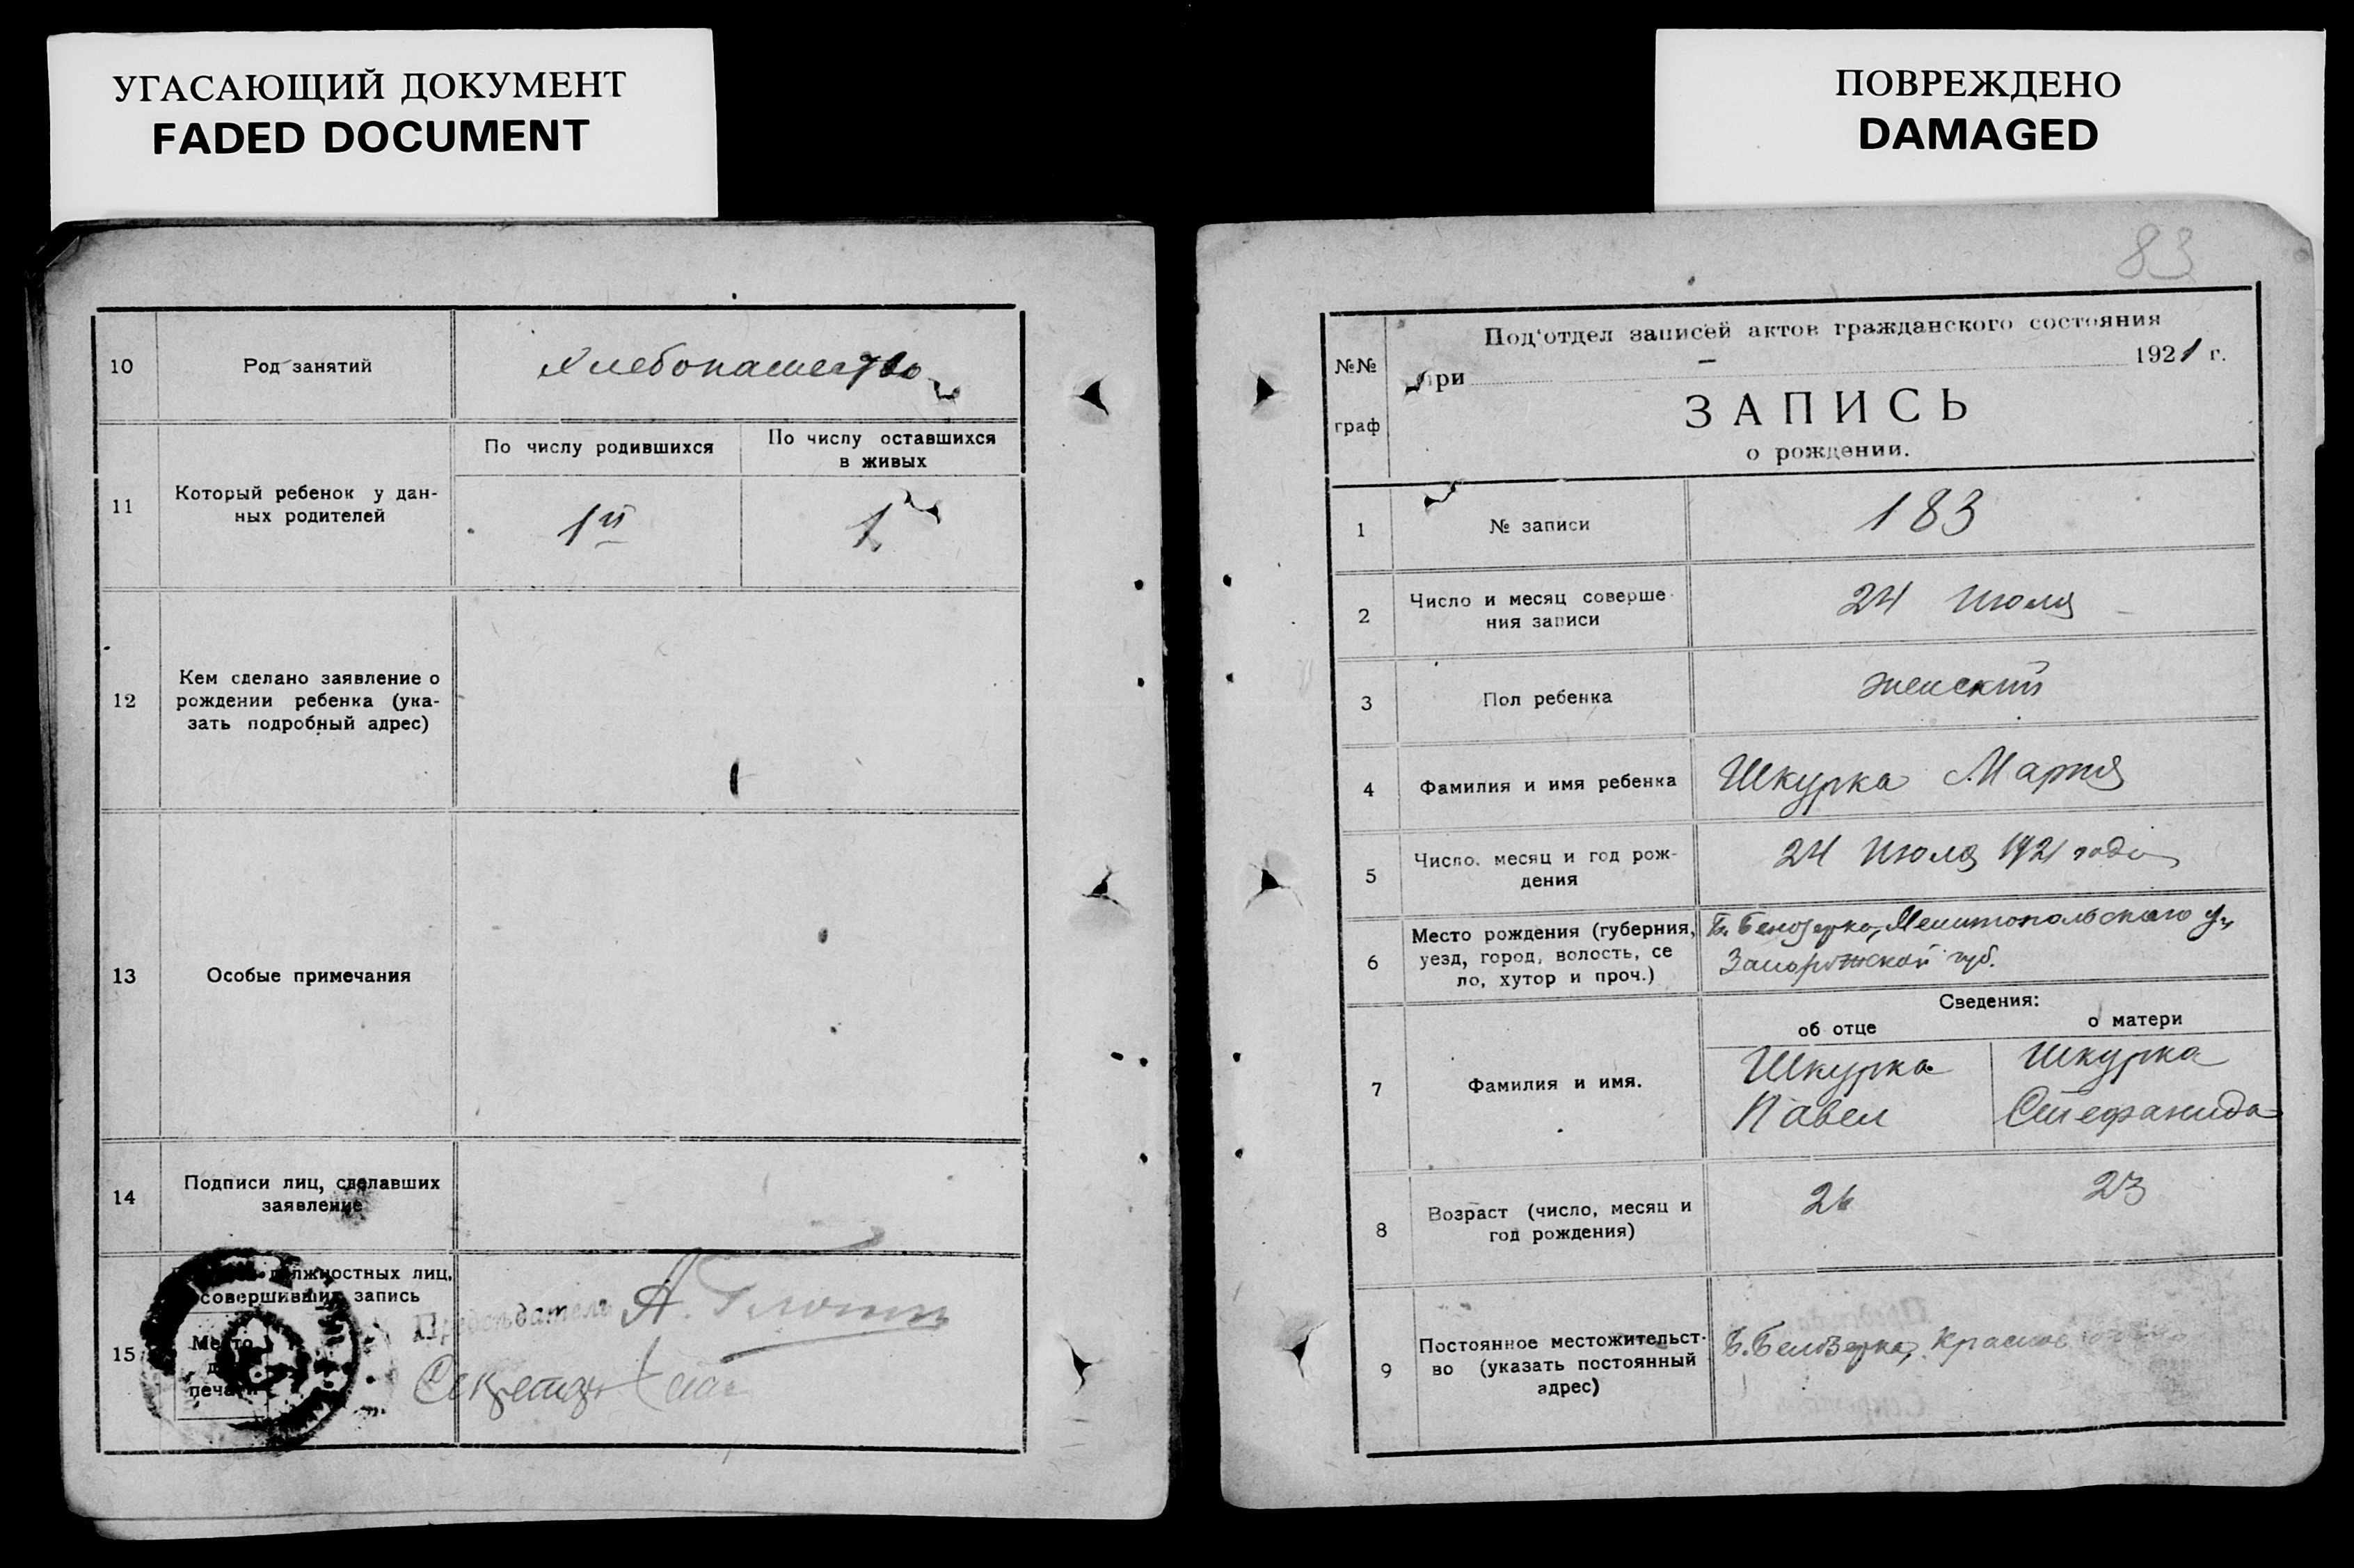 УГАСАЮЩИЙ ДОКУМЕНТ
FADED DOCUMENT
ПОВРЕЖДЕНО
DAMAGED
10
Род занятий
Хлебопашество
11
Который ребенок у дан-
ных родителей
По числу родившихся
По числу оставшихся
в живых
1й
1
12
Кем сделано заявление о
рождении ребенка (ука-
зать подробный адрес)
13
Особые примечания
14
Подписи лиц, сделавших
заявление
15
должностных лиц,
совершивших запись
Место
печати
Председатель А.
Секретарь
83
№№
граф
Под'отдел записей актов гражданского состояния
при
1921 г.
ЗАПИСЬ
о рождении.
1
№ записи
183
2
Число и месяц соверше-
ния записи
24 Июля
3
Пол ребенка
женский
4
Фамилия и имя ребенка
Шкурка Мария
5
Число, месяц и год рож-
дения
24 Июля 1921 года
6
Место рождения (губерния,
уезд, город, волость, се
ло, хутор и проч.)
Б. Белозерка, Мелитопольского у.,
Запорожской губ.
Сведения:
об отце
о матери
7
Фамилия и имя.
Шкурка
Павел
Шкурка
Стефанида
8
Возраст (число, месяц и
год рождения)
26
23
9
Постоянное местожительст-
во (указать постоянный
адрес)
Б. Белозерка,